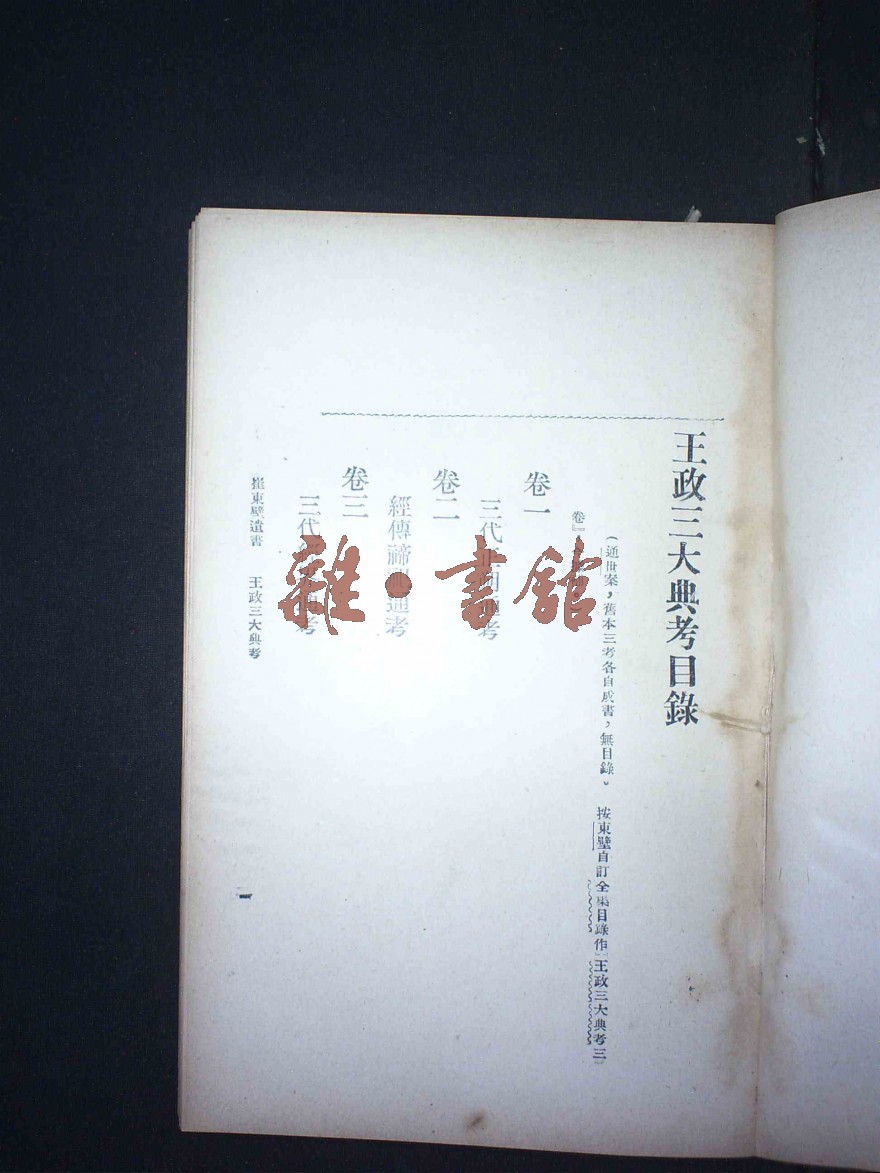 王政三大典考目錄
(通世案，舊本三考各自成書，無目錄。按東壁自訂全集目錄作「王政三大典考三
卷
卷一
三代 通考
卷二
經傳禘祀通考
卷三
三代 通考
崔東壁遺書 王政三大典考
一
雜·書館